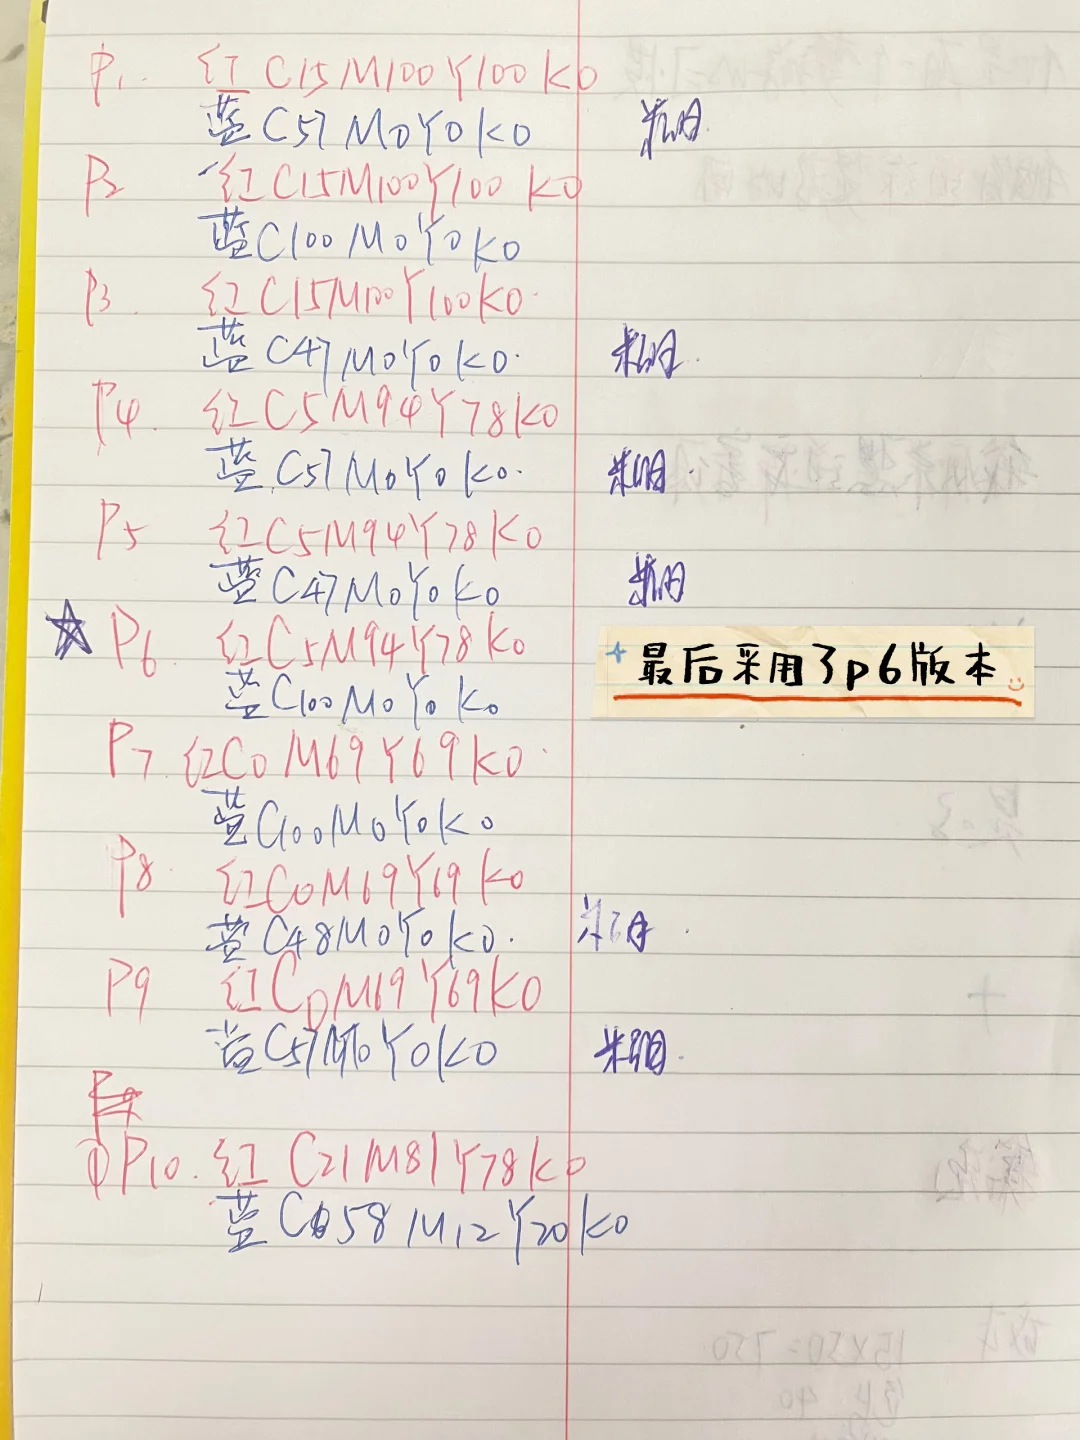 P1. 红 C15M100Y100K0
蓝 C57M0Y0K0
P2 红 C15M100Y100K0
蓝 C100M0Y0K0
P3. 红 C15M100Y100K0
蓝 C47M0Y0K0.
P4. 红 C5M94Y78K0
蓝 C57M0Y0K0.
P5 红 C5M94Y78K0
蓝 C47M0Y0K0
P6 红 C5M94Y78K0
最后采用了p6版本
蓝 C100M0Y0K0
P7 红 C0M69Y69K0
蓝 C100M0Y0K0
P8 红 C0M69Y69K0
蓝 C48M0Y0K0.
P9 红 C0M69Y69K0
蓝 C57M0Y0K0
P10. 红 C21M81Y78K0
蓝 C58M12Y20K0